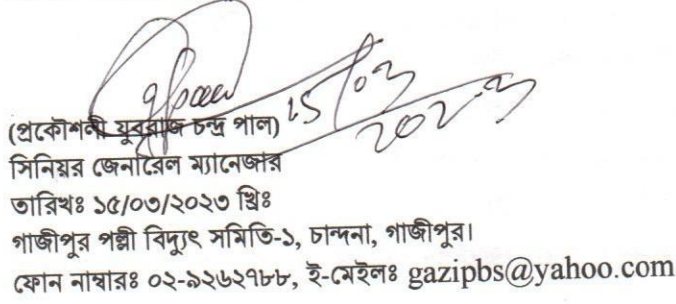 ১৫/০৩
২০২৩
(প্রকৌশলী যুবরাজ চন্দ্র পাল)
সিনিয়র জেনারেল ম্যানেজার
তারিখঃ ১৫/০৩/২০২৩ খ্রিঃ
গাজীপুর পল্লী বিদ্যুৎ সমিতি-১, চান্দনা, গাজীপুর।
ফোন নাম্বারঃ ০২-৯২৬২৭৮৮, ই-মেইলঃ gazipbs@yahoo.com